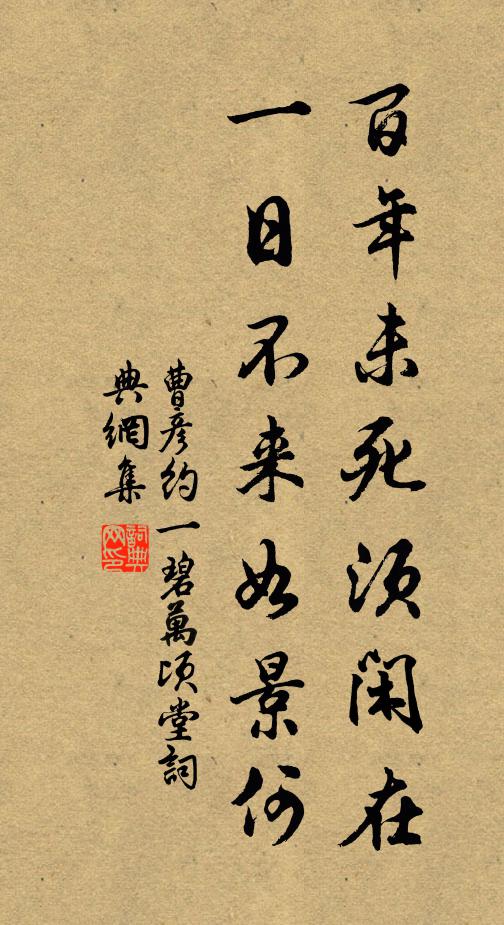 百年未死須閑在
一日不来如景何
曹彦約一碧萬頃堂詞
典網集
詞典
网印